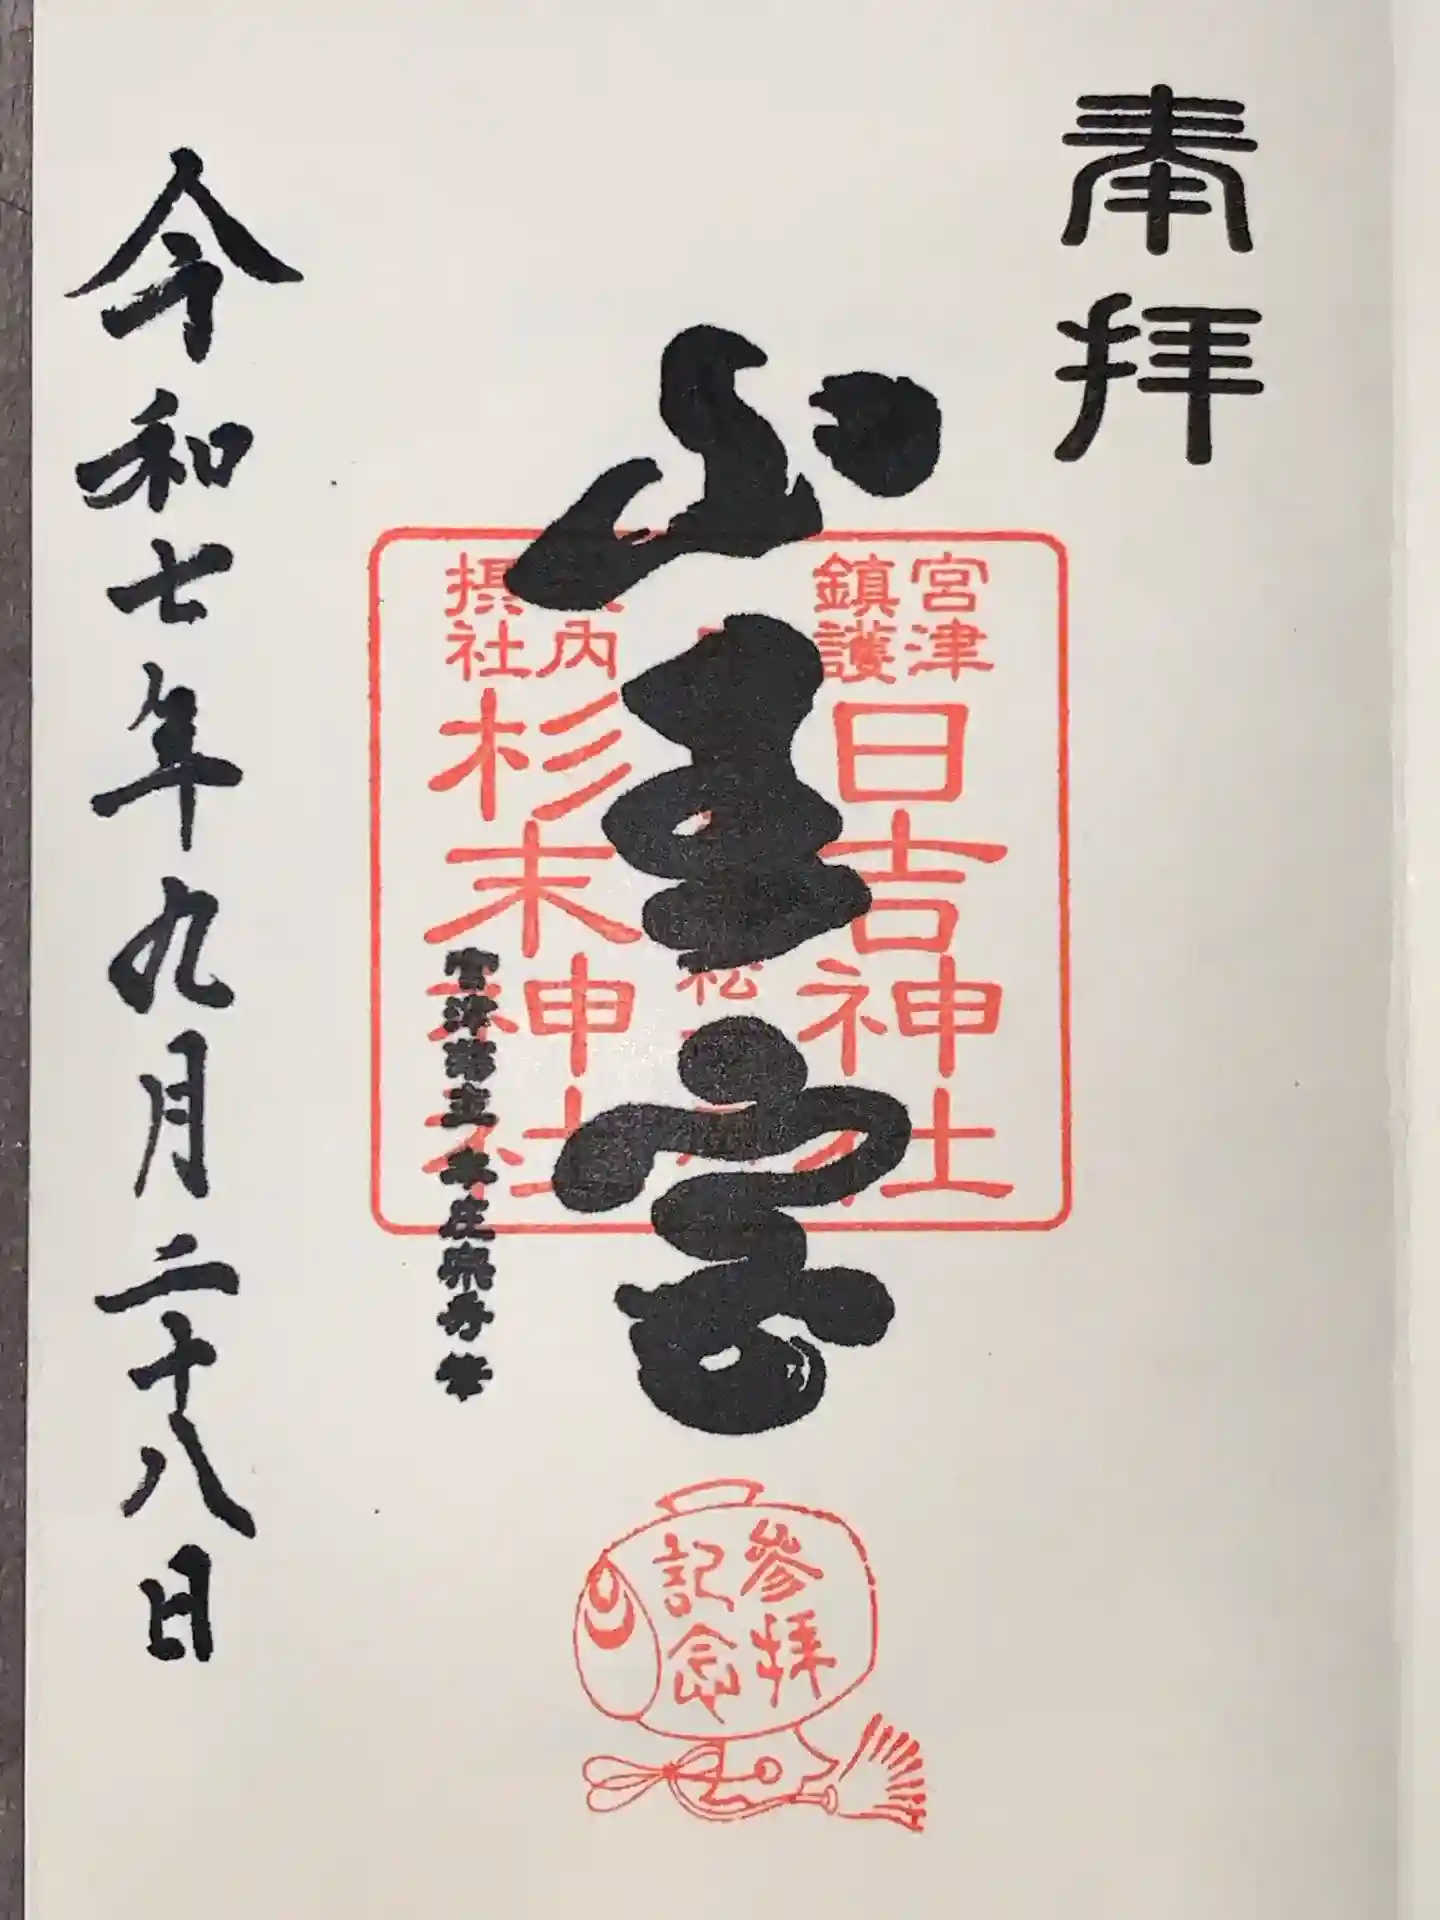 奉拝
山王宮
宮津
鎮護
日吉神社
内
摂社
杉末神社
宮津藩主
令和七年九月二十八日
參拝
記念